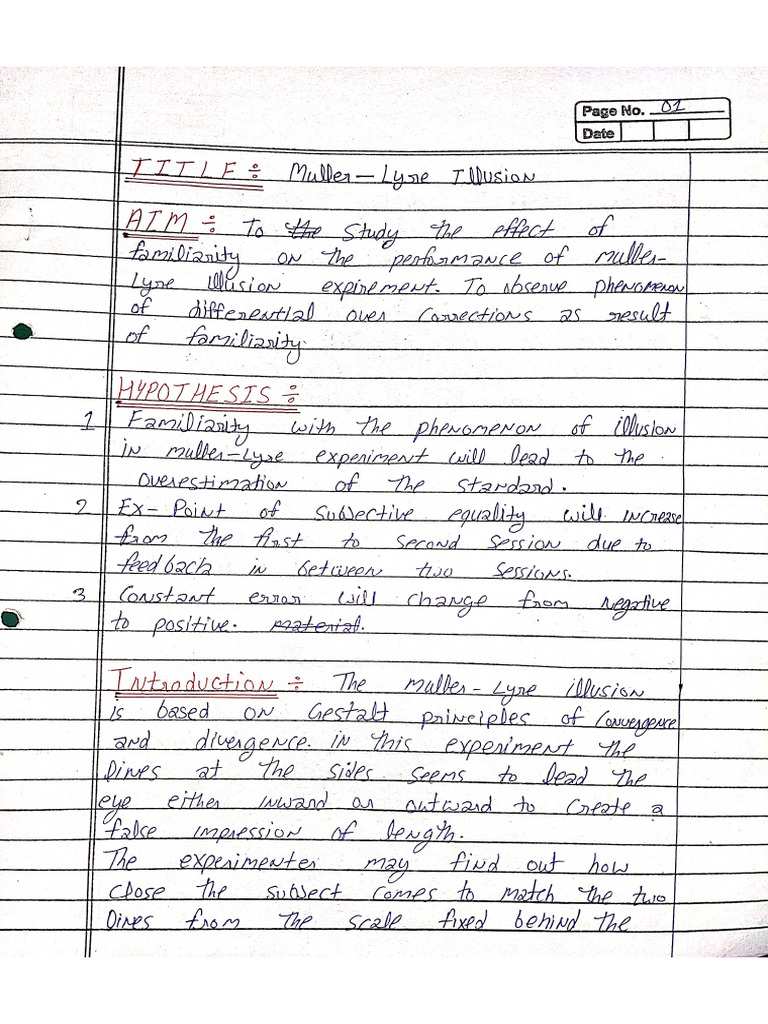 Page No. 01
Date
TITLE ÷ Muller-Lyre Illusion
AIM ÷ To the Study the effect of
familiarity on the performance of muller-
Lyre illusion expirement. To observe phenomenon
of differential over corrections as result
of familiarity.
HYPOTHESIS ÷
1 Familiarity with the phenomenon of illusion
in muller-Lyre experiment will lead to the
overestimation of the standard.
2 Ex- Point of subjective equality will increase
from the first to second session due to
feedback in between two sessions.
3 Constant error will change from negative
to positive. material.
Introduction ÷ The muller-Lyre illusion
is based on Gestalt principles of convergence
and divergence. in this experiment the
lines at the sides seems to lead the
eye either inward or outward to create a
false impression of length.
The experimenter may find out how
close the subject comes to match the two
lines from the scale fixed behind the